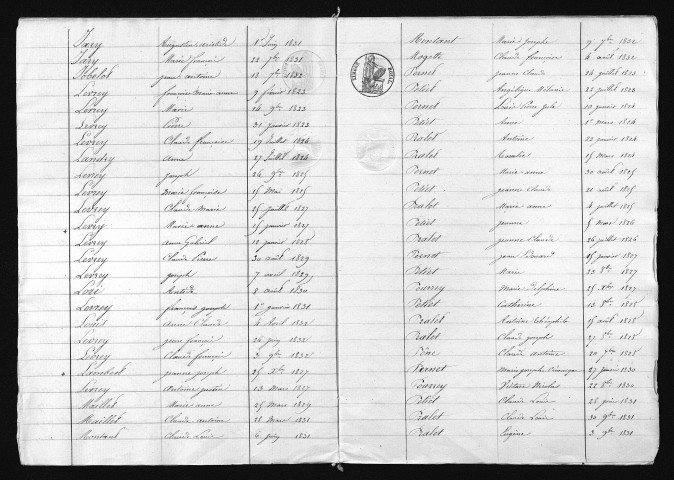 Jary Augustin aristide 1er Juin 1831
Jary Marie françoise 22 7bre 1831
Jobelot jean antoine 18 7bre 1832
Levrey françoise Marie anne 9 février 1823
Levrey Marie 14 9bre 1823
Levrey Pierre 31 janvier 1823
Levrey Claude françoise 19 juillet 1824
Landry anne 27 juillet 1824
Levrey joseph 24 9bre 1825
Levrey Marie françoise 15 Mai 1825
Levrey Claude Marie 25 juillet 1827
Levrey Marie anne 15 janvier 1827
Levrey anne Gabriel 12 janvier 1828
Levrey Claude Pierre 30 août 1829
Levrey joseph 7 avril 1829
8 août 1830
Levrey françois joseph 1er janvier 1831
Louis anne Claude 4 avril 1832
Levrey jean francois 26 juin 1832
Levrey Claude françois 3 9bre 1832
Lambert jeanne joseph 25 Xbre 1827
Levrey Antoine justin 13 Mars 1827
Maillet Marie anne 25 Mars 1829
Maillet Claude antoine 28 Mars 1831
Montant Claude Louis 6 juin 1831
Montant Marie josephe 9 7bre 1832
Mogette Claude françoise 4 août 1832
Pernet jeanne Claude 24 juillet 1823
Petiet Angélique Mélanie 22 juillet 1823
Pernet Louis Pierre 10 janvier 1824
Petiet Anne 1er Mars 1824
Ralet Antoine 22 janvier 1824
Ralet 15 Mars 1824
Pernet Marie anne 30 août 1825
Petiet jeanne Claude 21 août 1825
Ralet Marie anne 4 juillet 1825
Petiet jeanne 5 Mars 1826
Ralet jeanne Claude 26 juillet 1826
Pernet jean Edouard 15 janvier 1827
Petiet Marie 23 8bre 1827
Pourrey Marie Delphine 25 Xbre 1827
Petiet Catherine 13 8bre 1828
Ralet Théophile 15 août 1828
Ralet Claude joseph 27 8bre 1828
Claude antoine 20 7bre 1828
Pernet Marie joseph 27 janvier 1830
Pourrey Nicolas 22 8bre 1830
Petiet Claude Louis 28 juin 1831
Ralet Claude Louis 30 9bre 1831
Ralet Eugène 3 9bre 1831